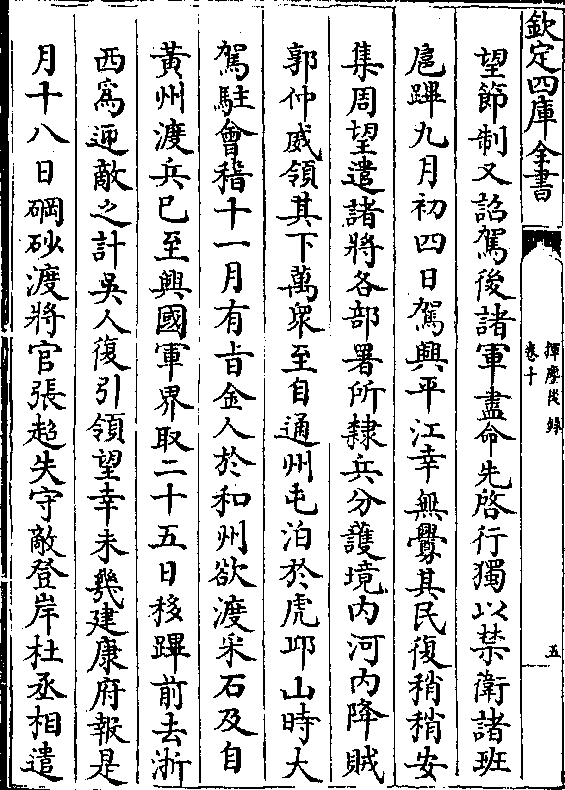 欽定四庫全書
揮麈後録
卷十
五
望節制又詔駕後諸軍盡命先啓行獨以禁衛諸班
扈蹕九月初四日駕興平江幸無釁其民復稍稍安
集周望遣諸將各部署所隸兵分護境内河内降賊
郭仲威領其下萬衆至自通州屯泊於虎邱山時大
駕駐會稽十一月有旨金人於和州欲渡采石及自
黃州渡兵已至興國軍界取二十五日移蹕前去浙
西爲迎敵之計吳人復引領望幸未幾建康府報是
月十八日碙砂渡將官張超失守敵登岸杜丞相遣